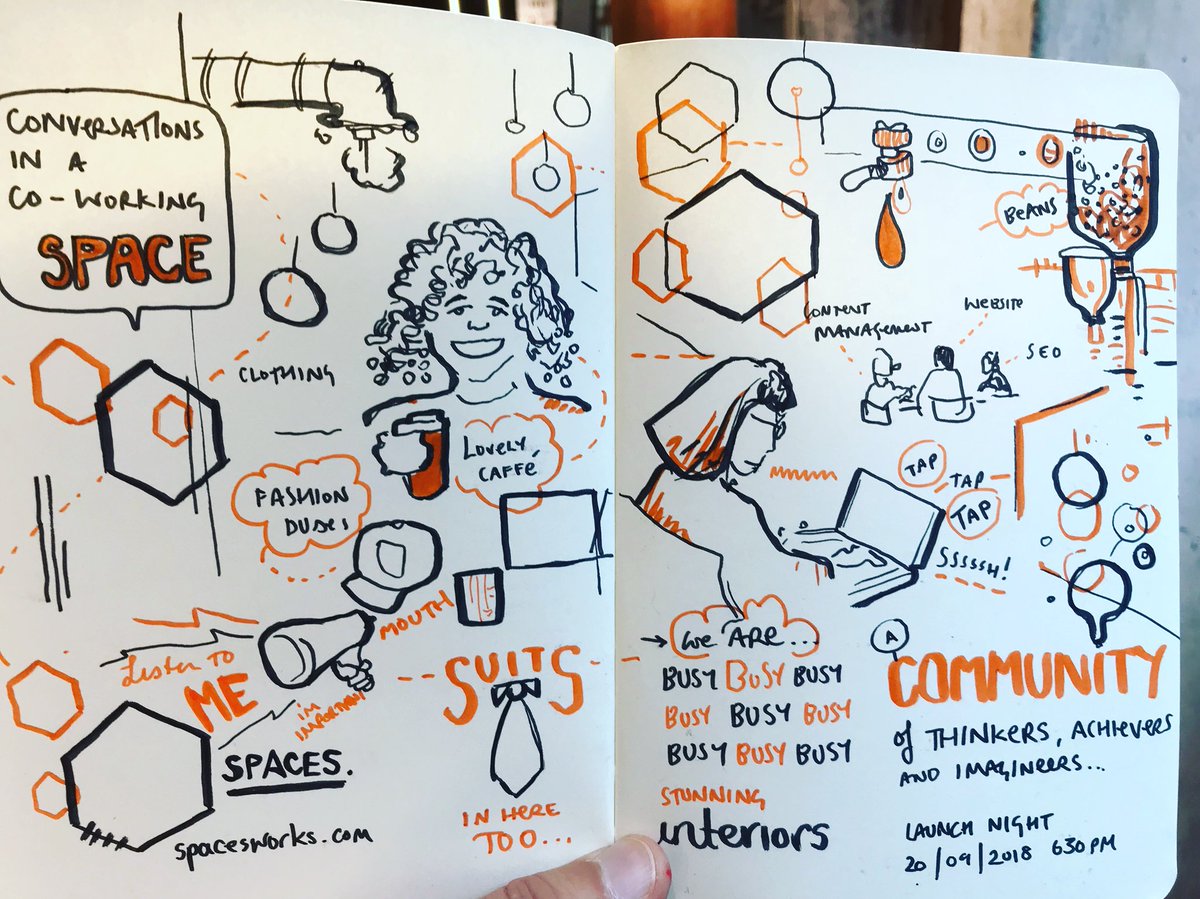 CONVERSATIONS
IN A
CO-WORKING
SPACE
CLOTHING
LOVELY,
CAFFÈ
FASHION
DUDES
MOUTH
LISTER TO
ME
I'M
IMPORTANT
SPACES.
spacesworks.com
SUITS
IN HERE
TOO...
BEANS
CONTENT
MANAGEMENT
WEBSITE
SEO
TAP
TAP
TAP
SSSSSH!
WE ARE...
BUSY BUSY BUSY
BUSY BUSY BUSY
BUSY BUSY BUSY
STUNNING
interiors
A
COMMUNITY
of THINKERS, ACHIEVERS
AND IMAGINEERS...
LAUNCH NIGHT
20/09/2018 630PM